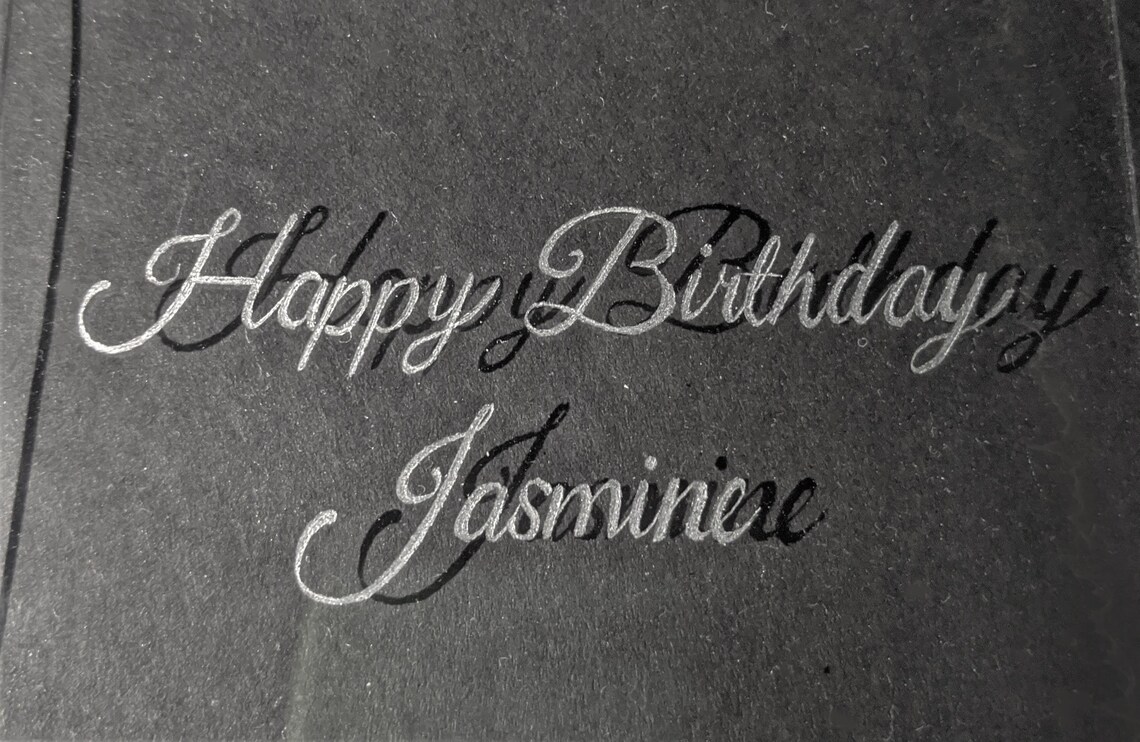 Happy Birthday
Jasmine